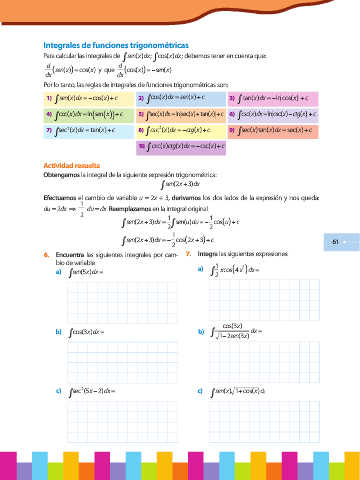 Integrales de funciones trigonométricas
Para calcular las integrales de ∫sen(x)dx; ∫cos(x)dx; debemos tener en cuenta que:
d/dx (sen(x)) = cos(x) y que d/dx (cos(x)) = −sen(x)
Por lo tanto, las reglas de integrales de funciones trigonométricas son:
1) ∫sen(x)dx = −cos(x)+c 2) ∫cos(x)dx = sen(x)+c 3) ∫tan(x)dx = −ln|cos(x)+c
4) ∫cot(x)dx = ln|sen(x)|+c 5) ∫sec(x)dx = ln|sec(x)+tan(x)+c 6) ∫csc(x)dx = ln|csc(x)−ctg(x)+c
7) ∫sec²(x)dx = tan(x)+c 8) ∫csc²(x)dx = −ctg(x)+c 9) ∫sec(x)tan(x)dx = sec(x)+c
10) ∫csc(x)ctg(x)dx = −csc(x)+c
Actividad resuelta
Obtengamos la integral de la siguiente expresión trigonométrica:
∫sen(2x+3)dx
Efectuamos el cambio de variable u = 2x + 3, derivamos los dos lados de la expresión y nos queda:
du = 2dx ⇒ 1/2 du = dx Reemplazamos en la integral original
∫sen(2x+3)dx = 1/2 ∫sen(u)du = −1/2 cos(u)+c
∫sen(2x+3)dx = −1/2 cos(2x+3)+c
61
6. Encuentra las siguientes integrales por cambio de variable
a) ∫sen(5x)dx =
b) ∫cos(3x)dx =
c) ∫sec²(5x−2)dx =
7. Integra las siguientes expresiones
a) ∫1/2 xcos(4x²)dx =
b) ∫cos(3x)/√1−2sen(3x) dx =
c) ∫sen(x)√1+cos(x) d